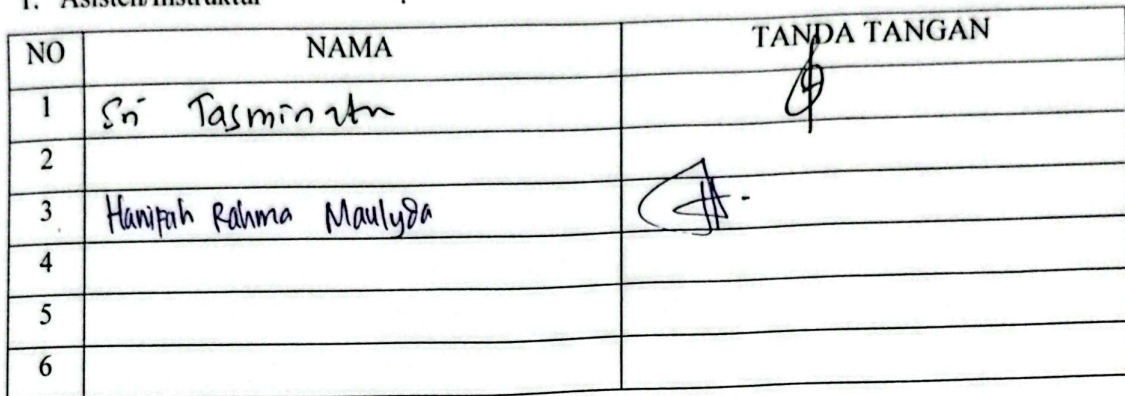 1. Asisten/Instruktur :
NO NAMA TANDA TANGAN
1 Sri
2
3 Hanifah Rahma Maulyda
4
5
6